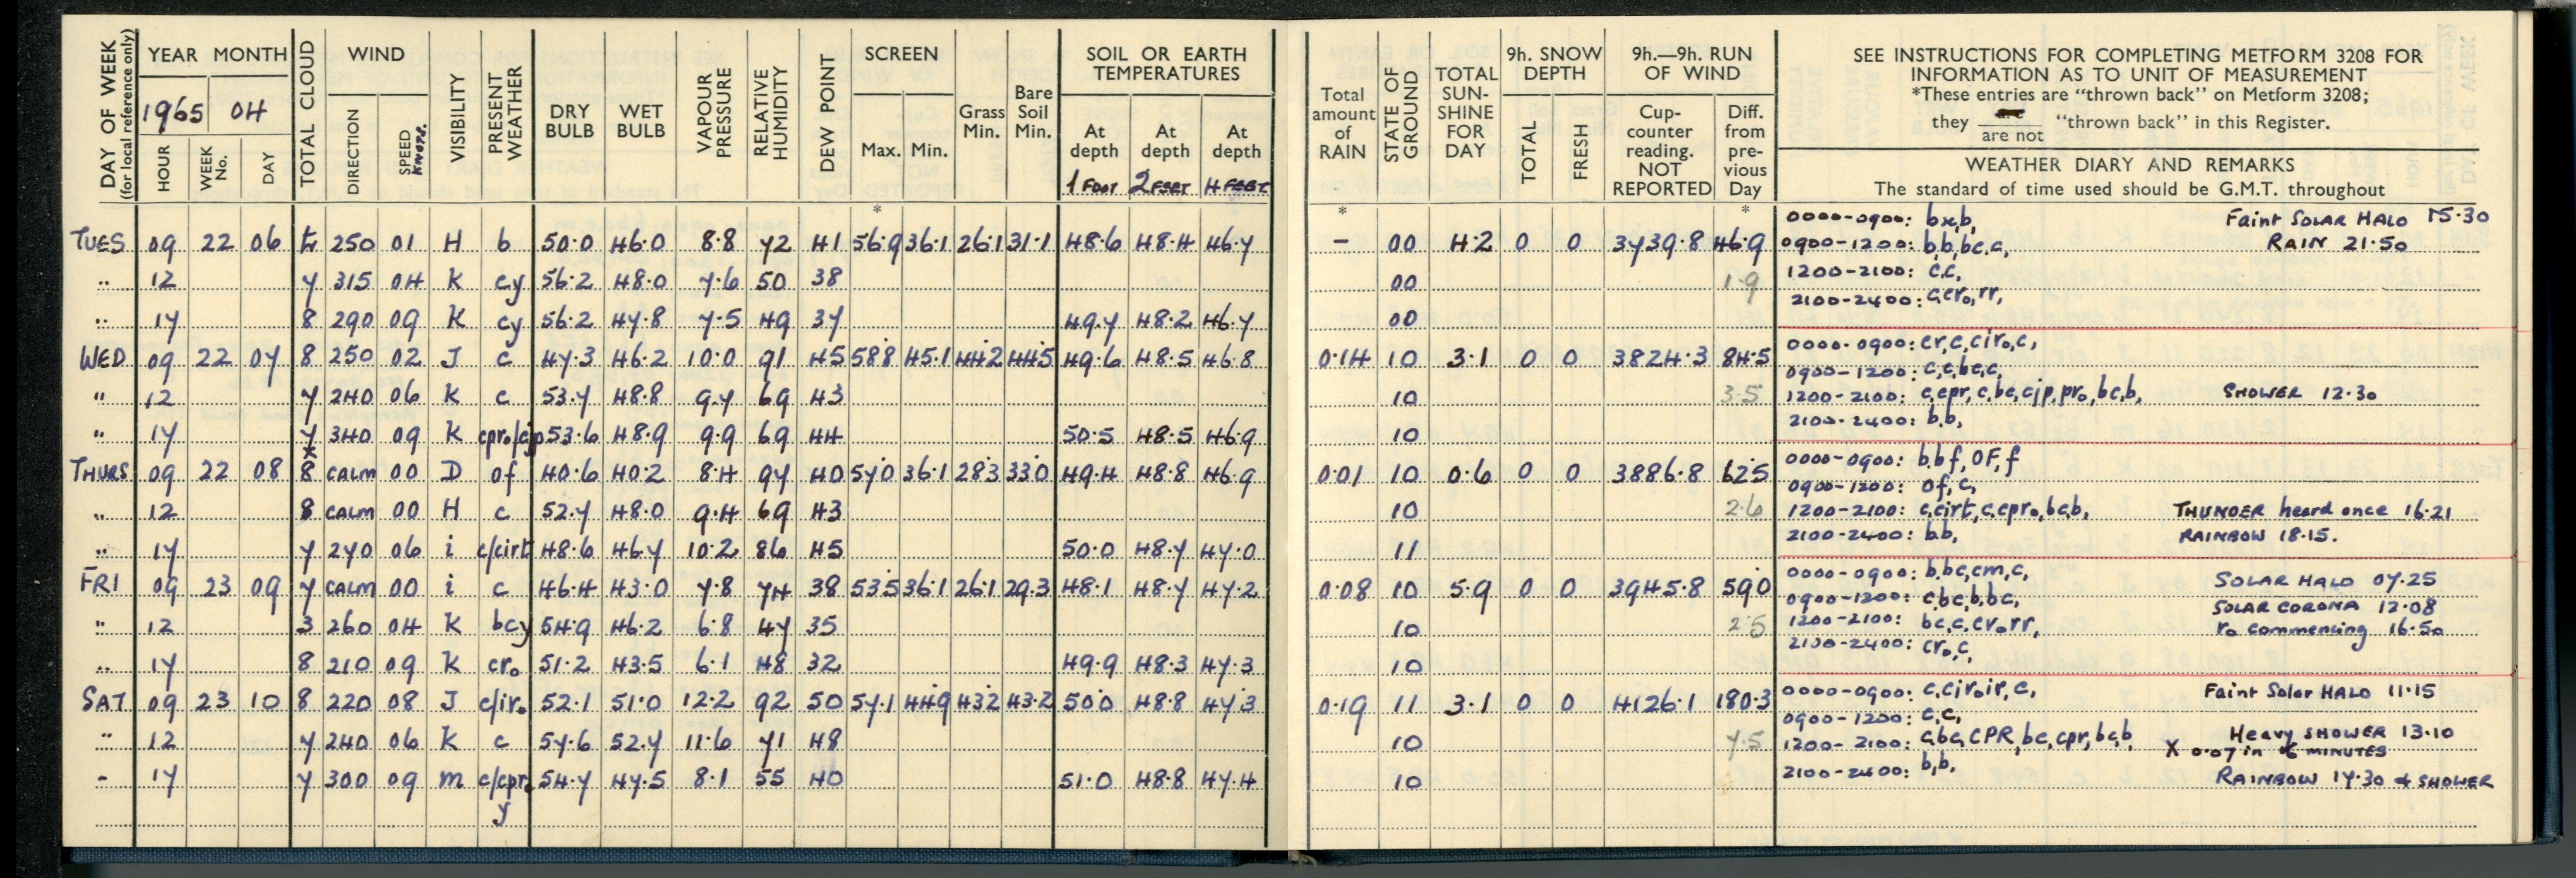 DAY OF WEEK (for local reference only) YEAR MONTH TOTAL CLOUD WIND VISIBILITY PRESENT WEATHER DRY BULB WET BULB VAPOUR PRESSURE RELATIVE HUMIDITY DEW POINT SCREEN Grass Min. Bare Soil Min. SOIL OR EARTH TEMPERATURES
1965 04
HOUR WEEK No. DAY DIRECTION SPEED KNOTS. Max. Min. At depth At depth At depth
1 FOOT 2 FEET 4 FEET
Total amount of RAIN STATE OF GROUND TOTAL SUN- SHINE FOR DAY 9h. SNOW DEPTH 9h.—9h. RUN OF WIND
TOTAL FRESH Cup- counter reading. NOT REPORTED Diff. from pre- vious Day
SEE INSTRUCTIONS FOR COMPLETING METFORM 3208 FOR
INFORMATION AS TO UNIT OF MEASUREMENT
*These entries are "thrown back" on Metform 3208;
they are are not "thrown back" in this Register.
WEATHER DIARY AND REMARKS
The standard of time used should be G.M.T. throughout
* * *
TUES 09 22 06 250 01 H b 50.0 46.0 8.8 72 41 56.9 36.1 26.1 31.1 48.6 48.4 46.7 – 00 4.2 0 0 3739.8 46.9
0000-0900: bx,b, Faint SOLAR HALO 15.30
0900-1200: b,b,bc,c, RAIN 21.50
" 12 7 315 04 K cy 56.2 48.0 7.6 50 38 00 1.9
1200-2100: c,c,
2100-2400: c,cr₀,rr,
" 17 8 290 09 K cy 56.2 47.8 7.5 49 37 49.7 48.2 46.7 00
WED 09 22 07 8 250 02 J c 47.3 46.2 10.0 91 45 58.8 45.1 44.2 44.5 49.6 48.5 46.8 0.14 10 3.1 0 0 3824.3 84.5
0000-0900: cr,c,cir₀,c,
0900-1200: c,c,bc,c,
" 12 7 240 06 K c 53.7 48.8 9.7 69 43 10 3.5
1200-2100: c,cpr,c,bc,cjp,pr₀,bc,b, SHOWER 12.30
" 17 7 340 09 K cpr₀/cjp 53.6 48.9 9.9 69 44 50.5 48.5 46.9 10
2100-2400: b,b,
THURS 09 22 08 8 CALM 00 D of 40.6 40.2 8.4 97 40 57.0 36.1 28.3 33.0 49.4 48.8 46.9 0.01 10 0.6 0 0 3886.8 62.5
0000-0900: b,bf,OF,f
0900-1200: Of,c,
" 12 8 CALM 00 H c 52.7 48.0 9.4 69 43 10 2.6
1200-2100: c,cirt,c,cpr₀,bc,b, THUNDER heard once 16.21
" 17 7 270 06 i c/cirt 48.6 46.7 10.2 86 45 50.0 48.7 47.0 11
2100-2400: b,b, RAINBOW 18.15.
FRI 09 23 09 7 CALM 00 i c 46.4 43.0 7.8 74 38 53.5 36.1 26.1 29.3 48.1 48.7 47.2 0.08 10 5.9 0 0 3945.8 59.0
0000-0900: b,bc,cm,c, SOLAR HALO 07.25
0900-1200: c,bc,b,bc, SOLAR CORONA 12.08
" 12 3 260 04 K bcy 54.9 46.2 6.8 47 35 10 2.5
1200-2100: bc,c,cr₀rr, r₀ commencing 16.50
" 17 8 210 09 K cr₀ 51.2 43.5 6.1 48 32 49.9 48.3 47.3 10
2100-2400: cr₀,c,
SAT 09 23 10 8 220 08 J c/ir₀ 52.1 51.0 12.2 92 50 57.1 44.9 43.2 43.2 50.0 48.8 47.3 0.19 11 3.1 0 0 4126.1 180.3
0000-0900: c,cir₀ir,c, Faint Solar HALO 11.15
0900-1200: c,c,
" 12 7 240 06 K c 57.6 52.7 11.6 71 48 10 7.5
1200-2100: c,bc,CPR,bc,cpr,bc,b Heavy SHOWER 13.10
X 0.07 in 6 MINUTES
- 17 7 300 09 m c/cpr₀ y 54.7 47.5 8.1 55 40 51.0 48.8 47.4 10
2100-2400: b,b, RAINBOW 17.30 & SHOWER